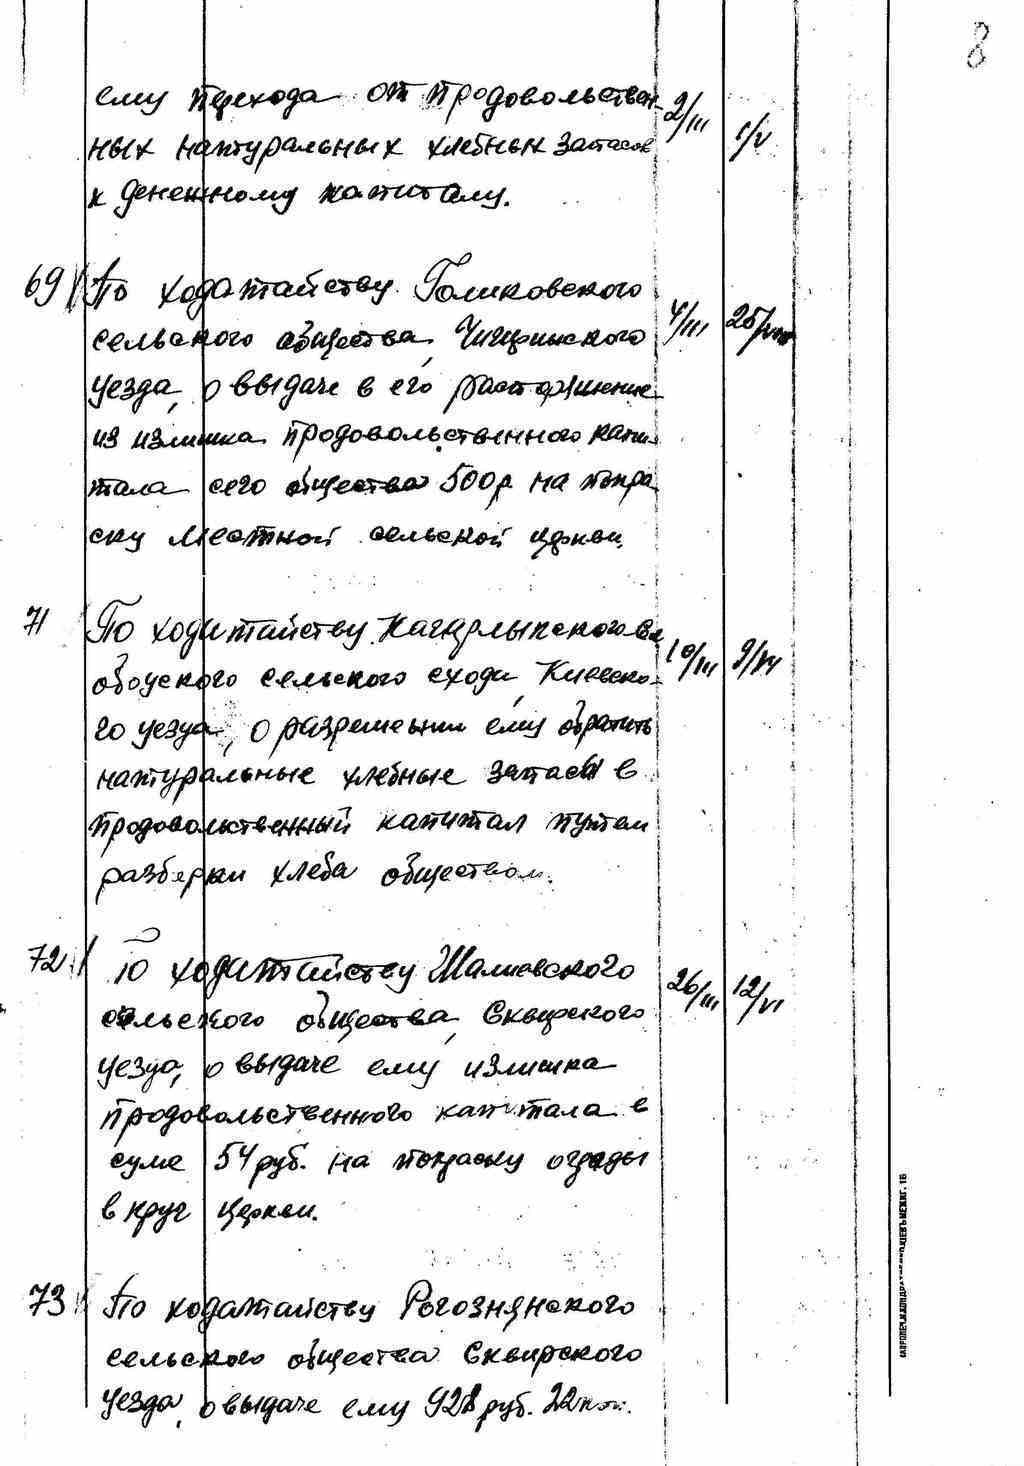 8
ему перехода от продовольствен-
ных натуральных хлебных запасов
к денежному капиталу.
2/III 1/V
69 По ходатайству Голиковского
сельского общества, Чигиринского
уезда, о выдаче в его распоряжение
из излишка продовольственного капи-
тала сего общества 500р на покра
ску местной сельской церкви.
4/III 25/VIII
71 По ходатайству Кагарлыкского
сельского схода, Киевско-
го уезда, о разрешении ему обратить
натуральные хлебные запасы в
продовольственный капитал путем
разберки хлеба обществом.
10/III 9/VI
72 По ходатайству Шалиевского
сельского общества, Сквирского
уезда, о выдаче ему излишка
продовольственного капитала в
суме 54 руб. на покраску ограды
в круг церкви.
26/III 12/VI
73 По ходатайству Рогознянского
сельского общества Сквирского
уезда, о выдаче ему 928 руб. 22 коп.